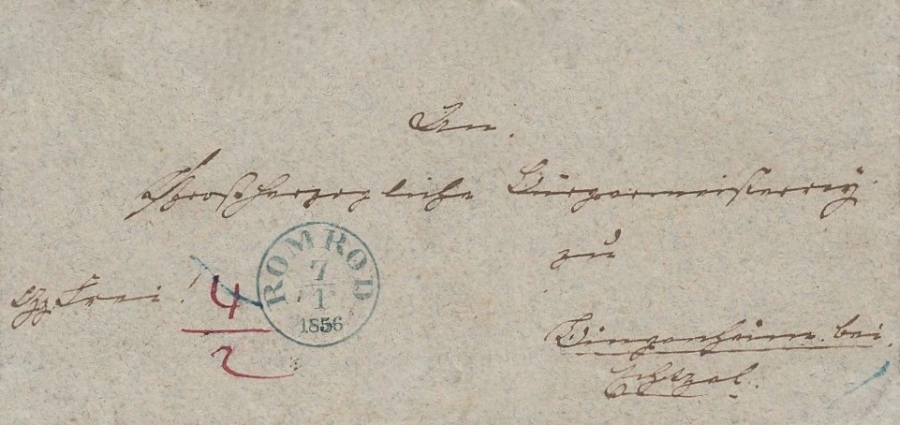 An
Großherzogliche Bürgermeisterey
zu
frei!
4
2
ROMROD
7
1
1856
Bingenheim bei
Echzel.